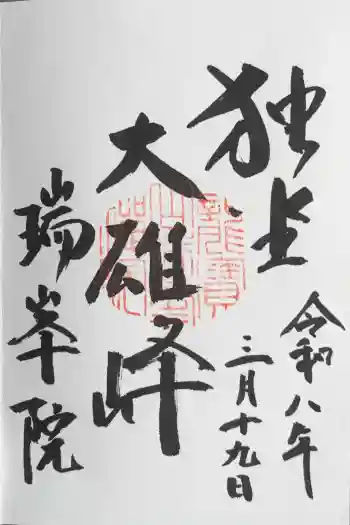 独坐
大雄峰
瑞峯院
令和八年
三月十九日